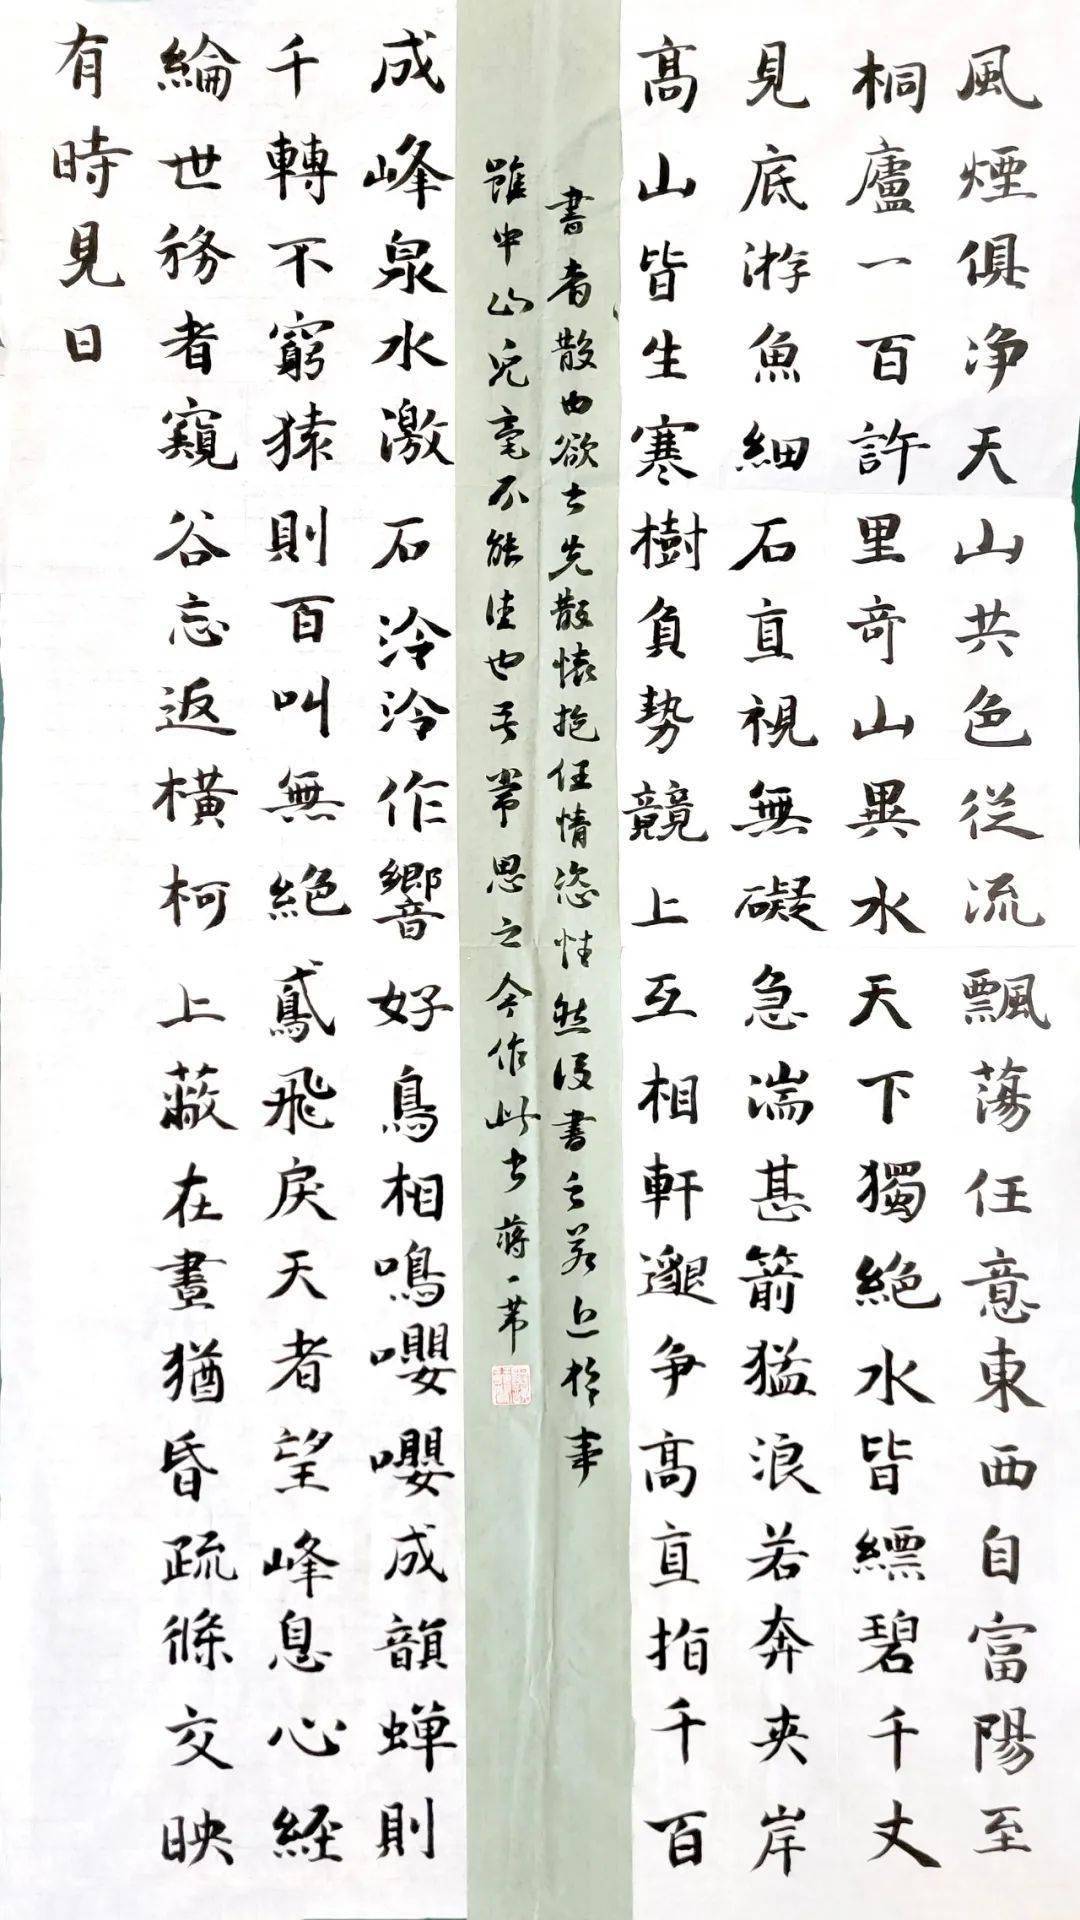 風煙俱净天山共色從流飄蕩任意東西自富陽至
桐廬一百許里奇山異水天下獨絕水皆縹碧千丈
見底游魚細石直視無礙急湍甚箭猛浪若奔夾岸
高山皆生寒樹負勢競上互相軒邈争高直指千百
書者散也欲書先散懷抱任情恣性然後書之若迫於事
雖中山兔毫不能佳也吾常思之今作此書蔣一
成峰泉水激石泠泠作響好鳥相鳴嚶嚶成韻蟬則
千轉不窮猿則百叫無絕鳶飛戾天者望峰息心經
綸世務者窺谷忘返橫柯上蔽在晝猶昏疏條交映
有時見日